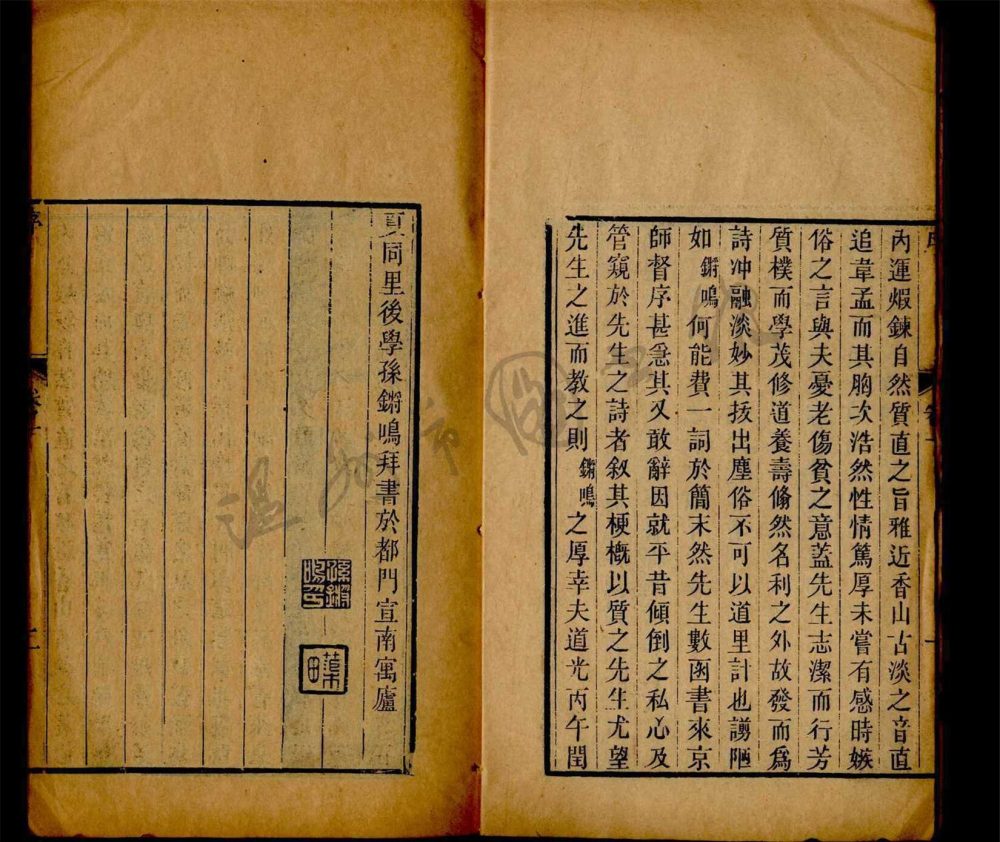 內運煅鍊自然質直之旨雅近香山古淡之音直
追韋孟而其胸次浩然性情篤厚未嘗有感時嫉
俗之言與夫憂老傷貧之意蓋先生志潔而行芳
質樸而學茂修道養壽翛然名利之外故發而爲
詩冲融淡妙其拔出塵俗不可以道里計也謭陋
如鏘鳴何能費一詞於簡末然先生數函書來京
師督序甚急其又敢辭因就平昔傾倒之私心及
管窺於先生之詩者叙其梗概以質之先生尤望
先生之進而教之則鏘鳴之厚幸夫道光丙午閏
同里後學孫鏘鳴拜書於都門宣南寓廬
孫鏘鳴印
蕖田
序
溫州市圖